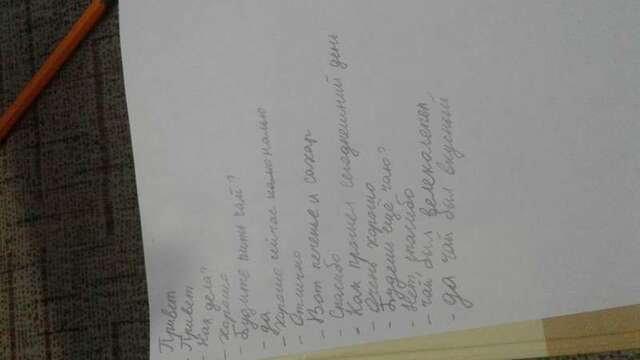 Привет
- Привет
- Как дела?
- хорошо
- Будите пить чай?
- да
- хорошо сейчас
- Отлично
- Вот печенье и сахар
- Спасибо
- Как прошёл сегоднешний день
- Очень хорошо
- Будешь ещё чаю?
- Нет, спасибо
- чай был велеколепен
- да чай был вкусный